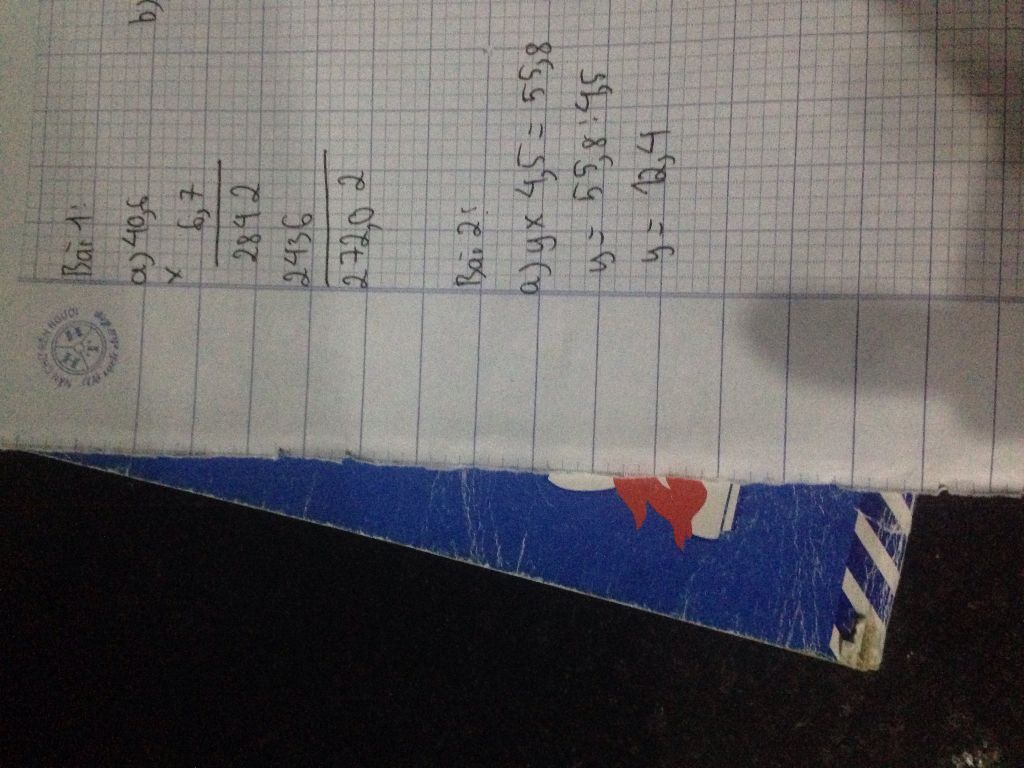 Bài 1:
a) 40,6
x
6,7
2842
2436
272,02
b)
Bài 2:
a) y x 4,5 = 55,8
y = 55,8 : 4,5
y = 12,4